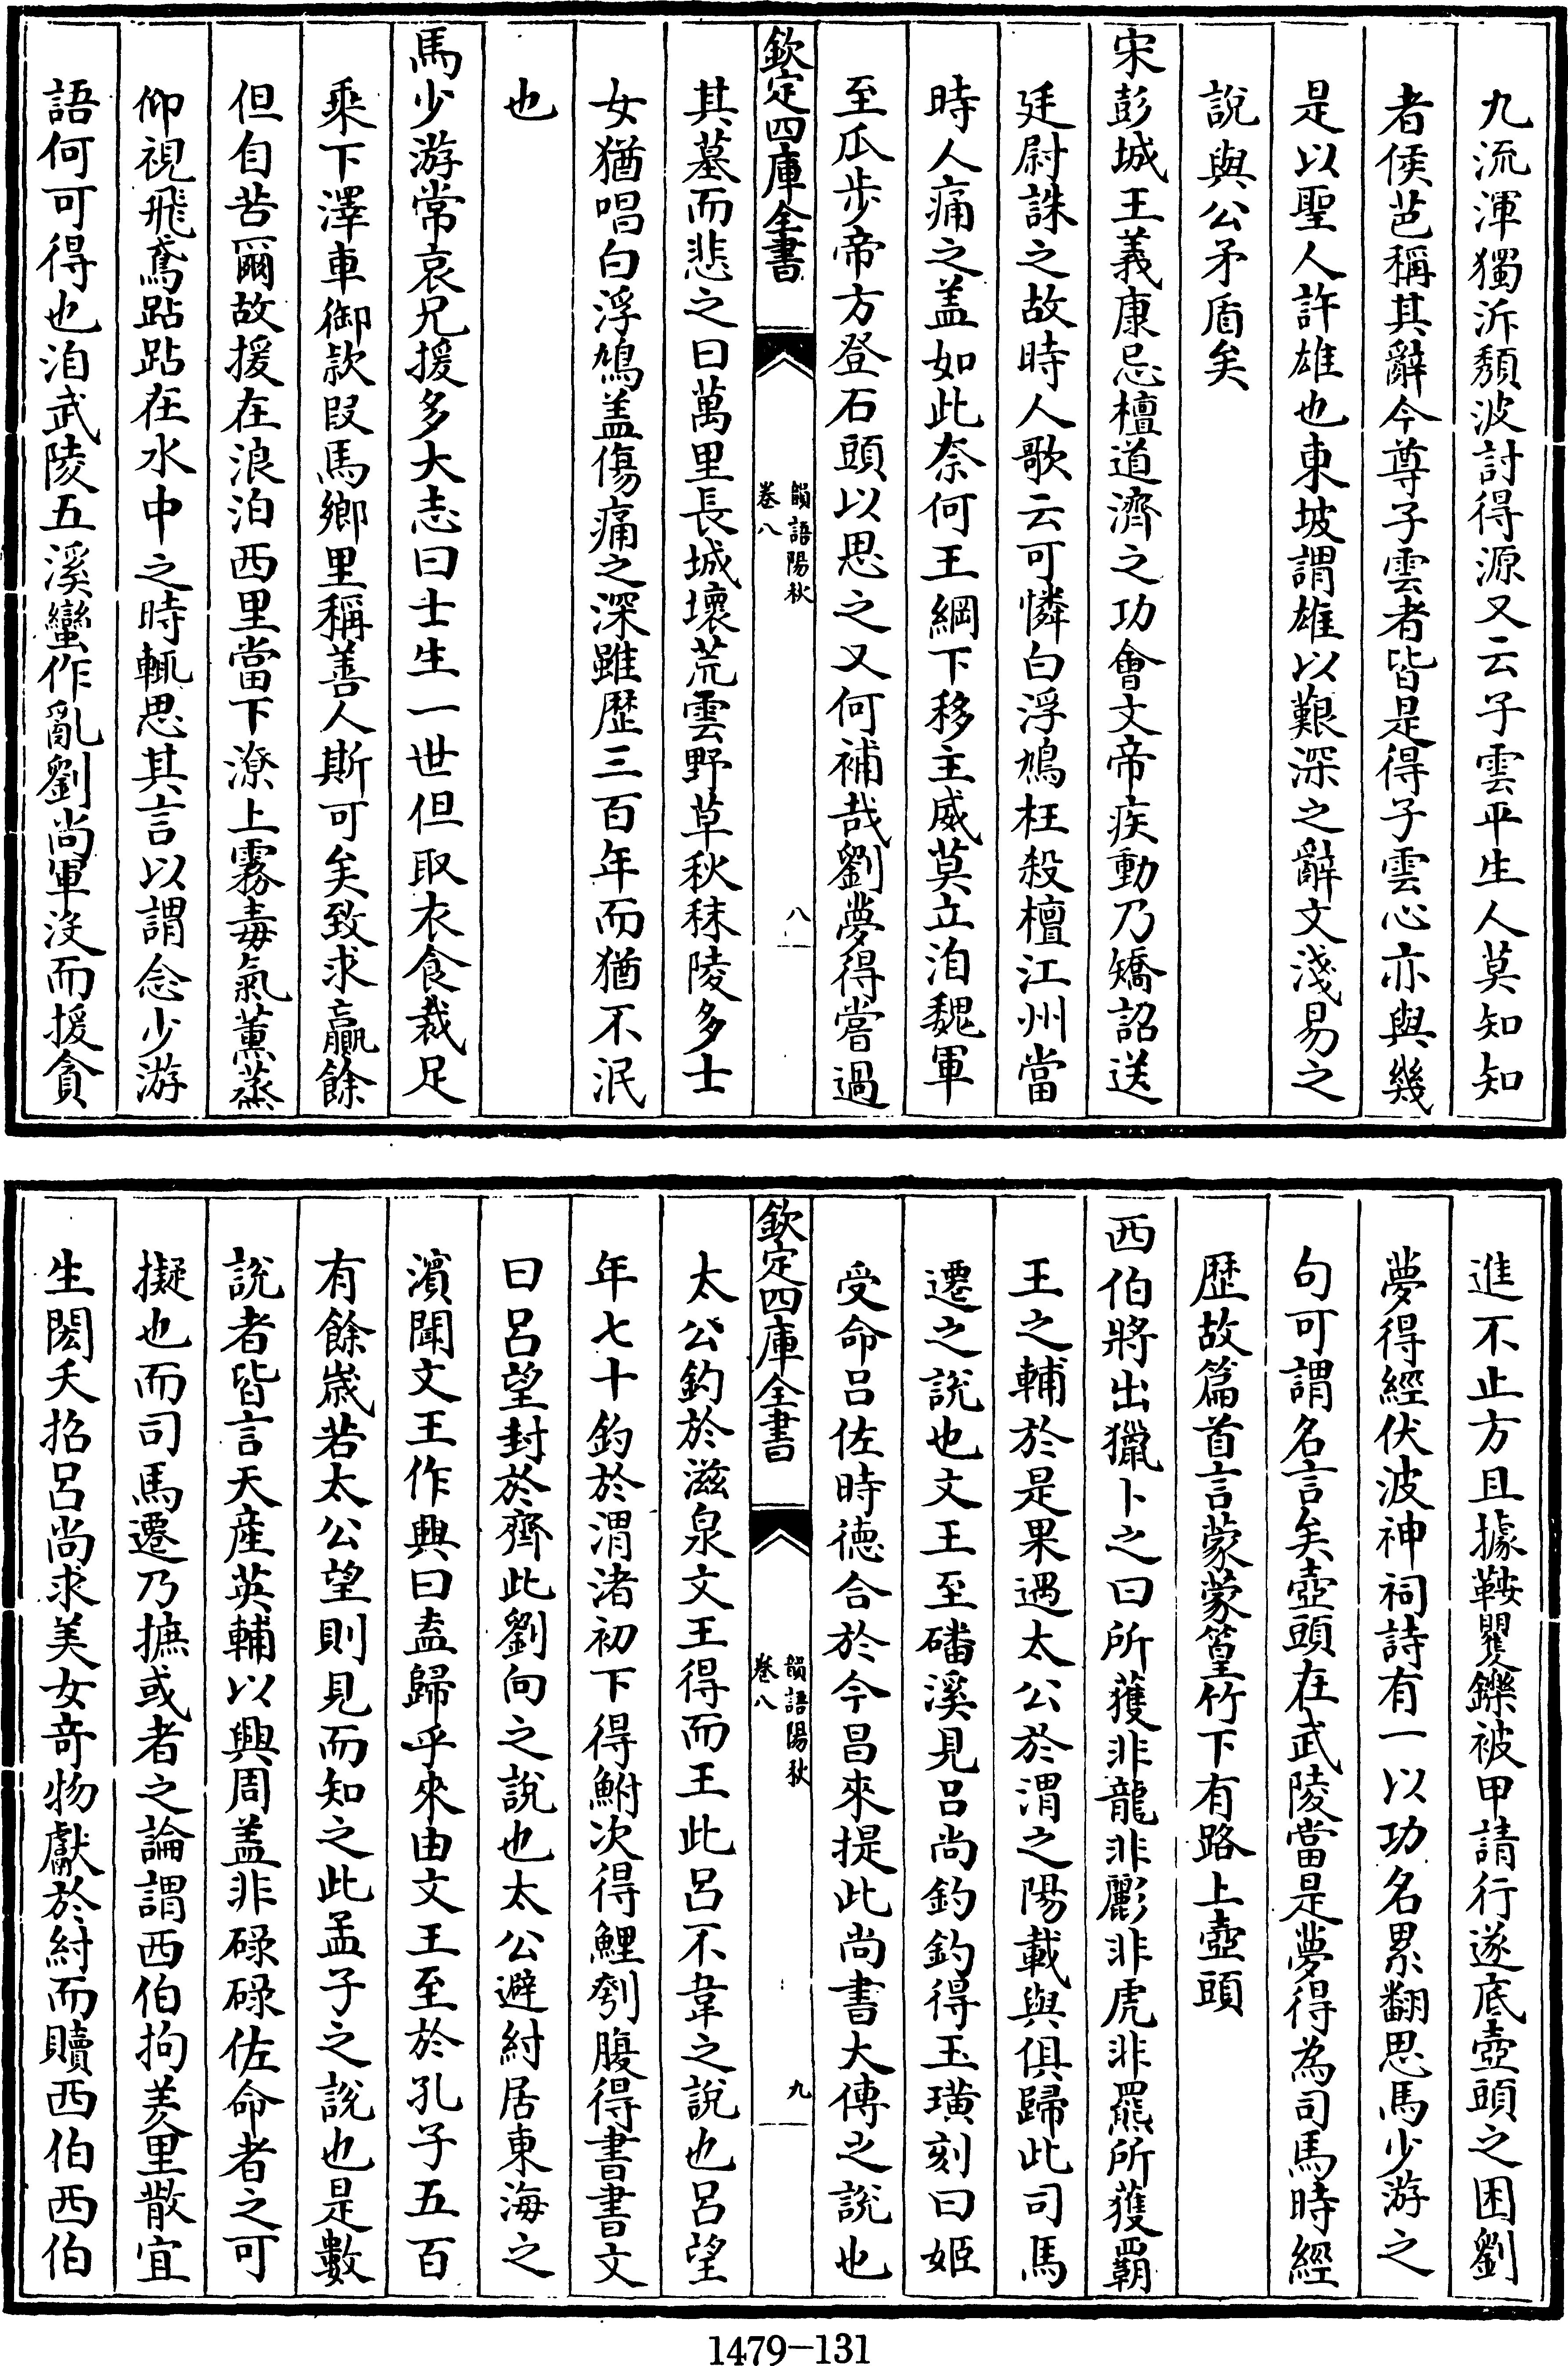 九流渾獨泝頽波討得源又云子雲平生人莫知知
者侯芭稱其辭今尊子雲者皆是得子雲心亦與幾
是以聖人許雄也東坡謂雄以艱深之辭文淺易之
說與公矛盾矣
宋彭城王義康忌檀道濟之功會文帝疾動乃矯詔送
廷尉誅之故時人歌云可憐白浮鳩枉殺檀江州當
時人痛之盖如此奈何王綱下移主威莫立洎魏軍
至瓜步帝方登石頭以思之又何補哉劉夢得嘗過
欽定四庫全書
韻語陽秋
卷八
八
其墓而悲之曰萬里長城壞荒雲野草秋秣陵多士
女猶唱白浮鳩盖傷痛之深雖歴三百年而猶不泯
也
馬少游常哀兄援多大志曰士生一世但取衣食裁足
乘下澤車御款段馬鄉里稱善人斯可矣致求贏餘
但自苦爾故援在浪泊西里當下潦上霧毒氣薫蒸
仰視飛鳶跕跕在水中之時輒思其言以謂念少游
語何可得也洎武陵五溪蠻作亂劉尚軍没而援貪
進不止方且據鞍矍鑠被甲請行遂底壺頭之困劉
夢得經伏波神祠詩有一以功名累翻思馬少游之
句可謂名言矣壺頭在武陵當是夢得為司馬時經
歴故篇首言蒙蒙篁竹下有路上壺頭
西伯將出獵卜之曰所獲非龍非彲非虎非羆所獲覇
王之輔於是果遇太公於渭之陽載與俱歸此司馬
遷之說也文王至磻溪見呂尚釣釣得玉璜刻曰姬
受命呂佐時德合於今昌來提此尚書大傳之說也
欽定四庫全書
韻語陽秋
卷八
九
太公釣於滋泉文王得而王此呂不韋之說也呂望
年七十釣於渭渚初下得鮒次得鯉刳腹得書書文
曰呂望封於齊此劉向之說也太公避紂居東海之
濱聞文王作興曰盍歸乎來由文王至於孔子五百
有餘歲若太公望則見而知之此孟子之說也是數
說者皆言天産英輔以興周盖非碌碌佐命者之可
擬也而司馬遷乃摭或者之論謂西伯拘羑里散宜
生閎夭招呂尚求美女竒物獻於紂而贖西伯西伯
1479-131